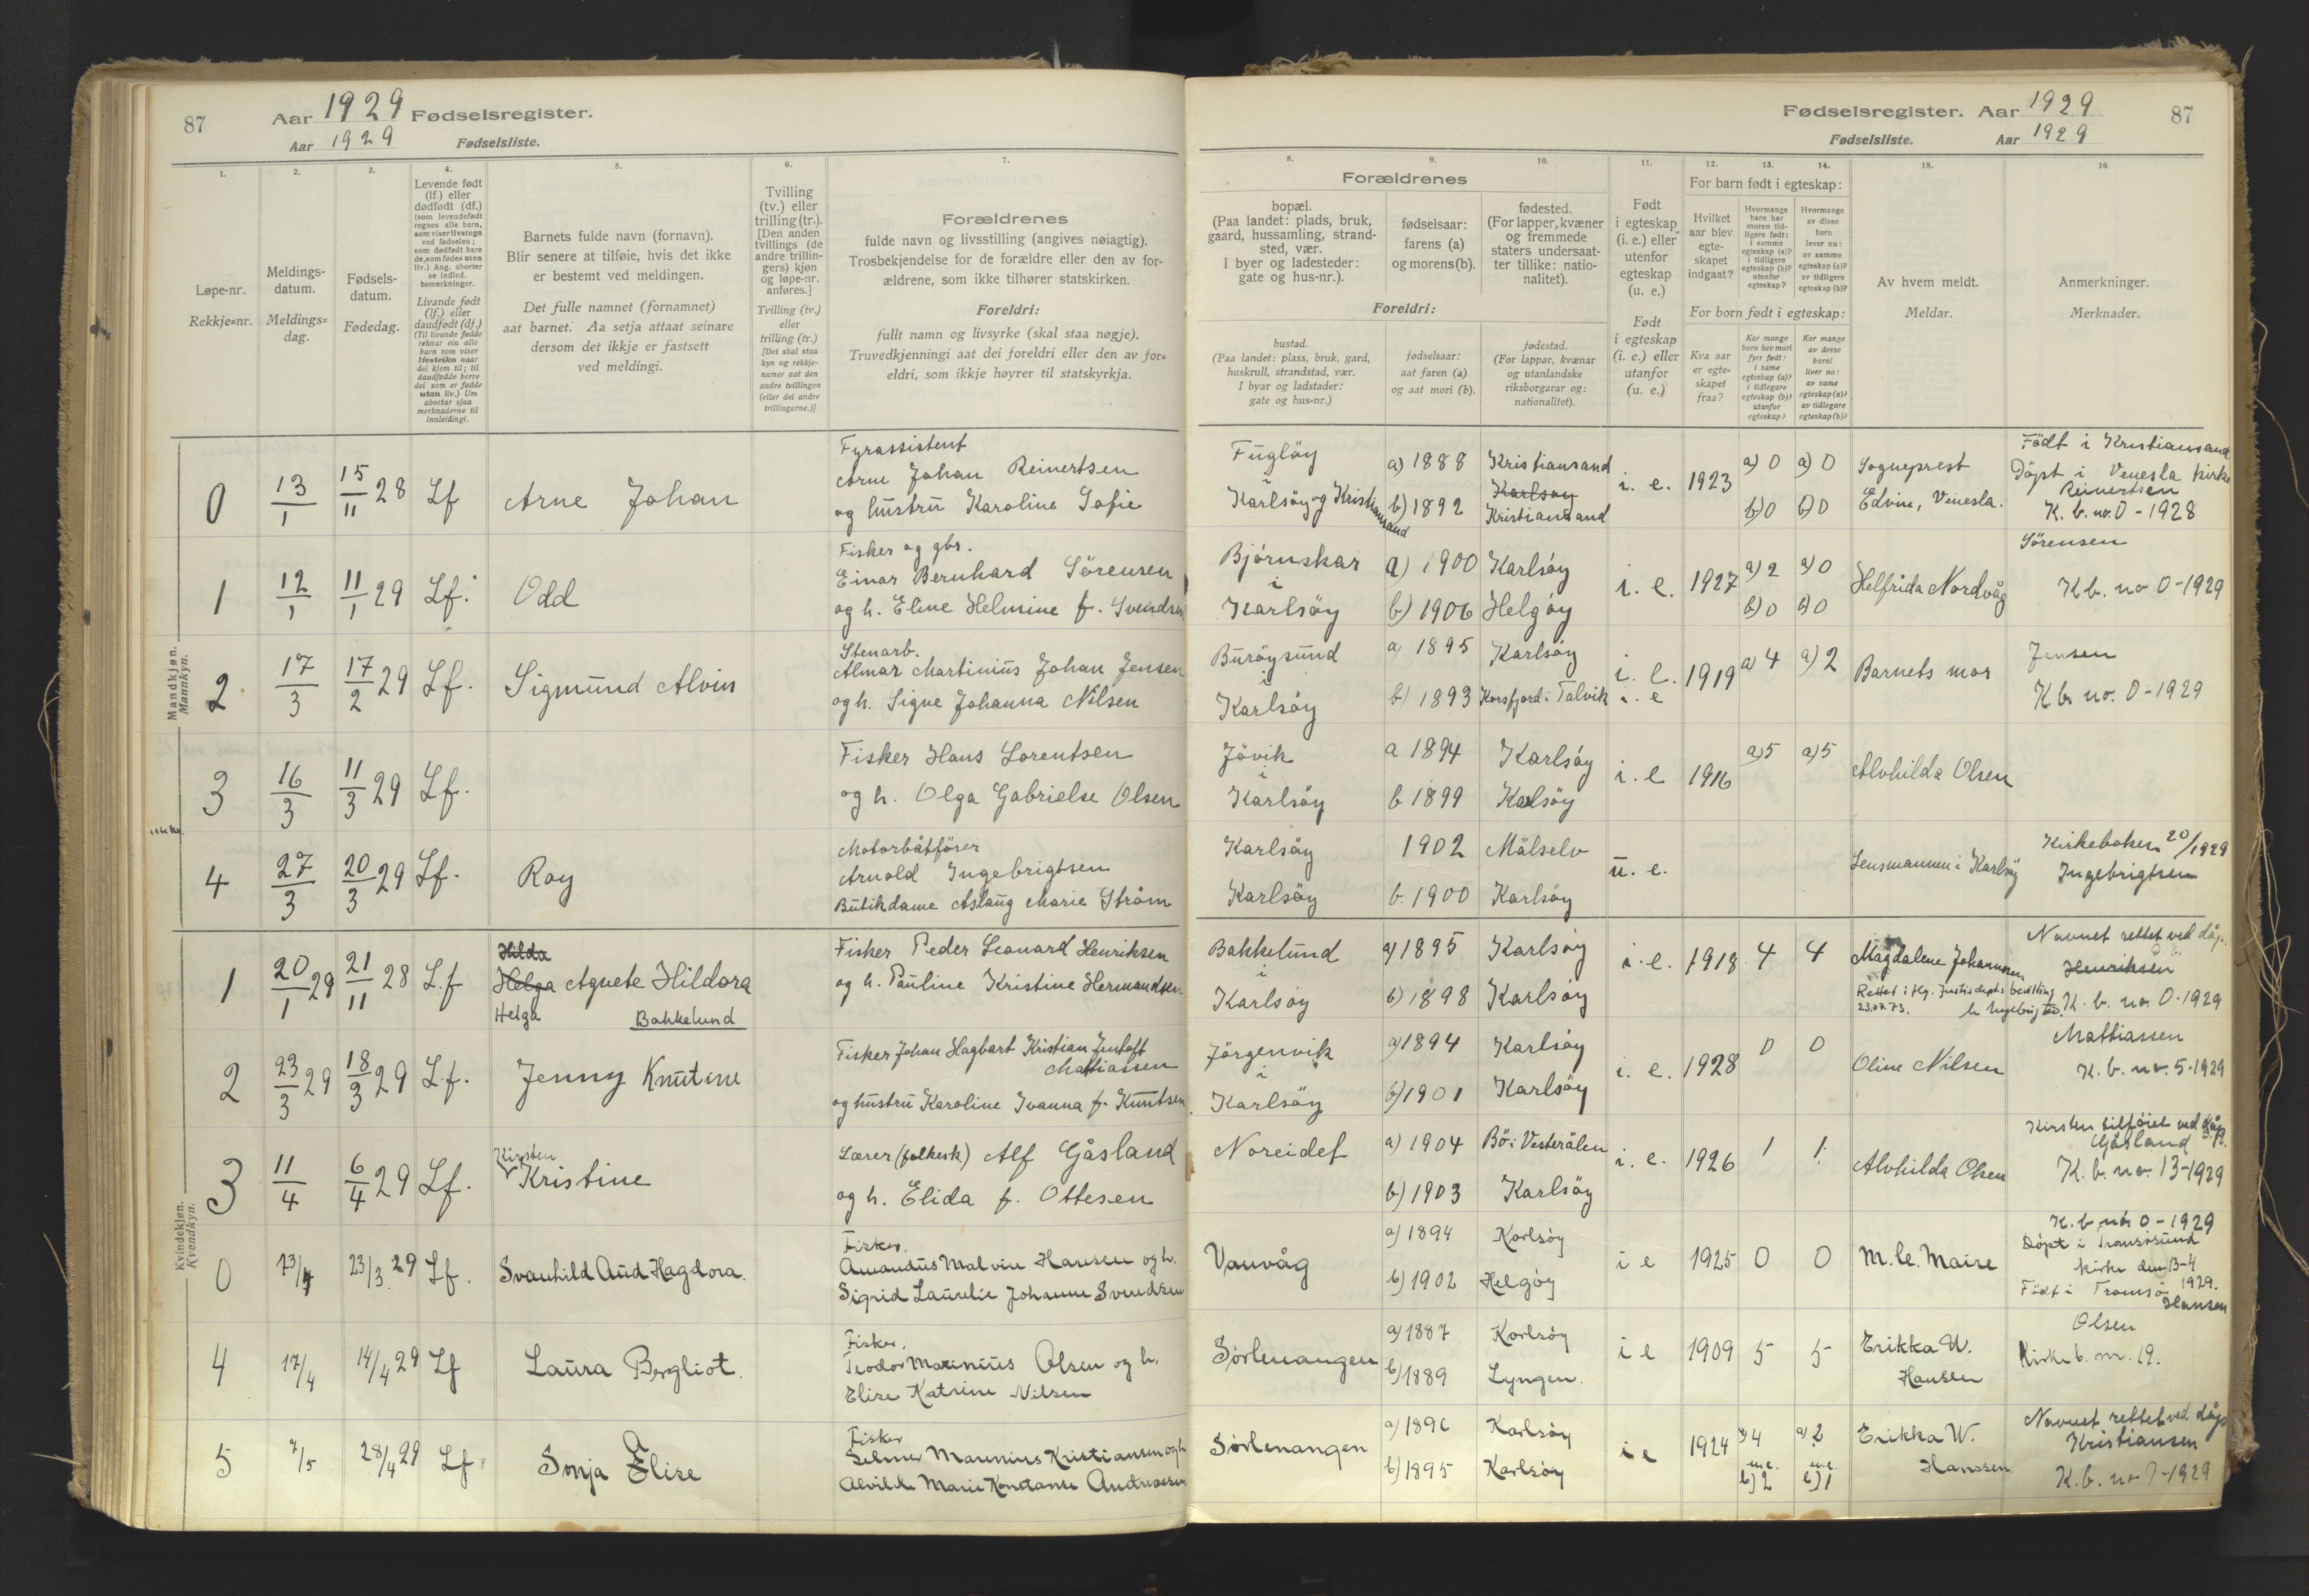 87
Aar 1929 Fødselsregister.
Aar 1929 Fødselsliste.
Fødselsregister. Aar 1929
87
Fødselsliste. Aar 1929
1.
Løpe-nr.
Rekkje=nr.
2.
Meldings-
datum.
Meldings=
dag.
3.
Fødsels-
datum.
Fødedag.
4.
Levende født
(lf.) eller
dødfødt (df.)
(som levendefødt
regnes alle barn,
som viser livstegn
ved fødselen;
som dødfødt bare
de, som fødes uten
liv.) Ang. aborter
se indled.
bemerkninger.
Livande født
(lf.) eller
daudfødt (df.)
(Til livande fødde
reknar ein alle
barn som viser
livsteikn naar
dei kjem til; til
daudfødde berre
dei som er fødde
utan liv.) Um
abortar sjaa
merknaderne til
innleidingi.
5.
Barnets fulde navn (fornavn).
Blir senere at tilføie, hvis det ikke
er bestemt ved meldingen.
Det fulle namnet (fornamnet)
aat barnet. Aa setja attaat seinare
dersom det ikkje er fastsett
ved meldingi.
6.
Tvilling
(tv.) eller
trilling (tr.).
[Den anden
tvillings (de
andre trillin-
gers) kjøn
og løpe-nr.
anføres.]
Tvilling (tv.)
eller
trilling (tr.)
[Det skal staa
kyn og rekkje-
numer aat den
andre tvillingen
(eller dei andre
trillingarne.)]
7.
Forældrenes
fulde navn og livsstilling (angives nøiagtig).
Trosbekjendelse for de forældre eller den av for-
ældrene, som ikke tilhører statskirken.
Foreldri:
fullt namn og livsyrke (skal staa nøgje).
Truvedkjenningi aat dei foreldri eller den av for=
eldri, som ikkje høyrer til statskyrkja.
8.
Forældrenes
bopæl.
(Paa landet: plads, bruk,
gaard, hussamling, strand-
sted, vær.
I byer og ladesteder:
gate og hus-nr.).
Foreldri:
bustad.
(Paa landet: plass, bruk, gard,
huskrull, strandstad, vær.
I byar og ladstader:
gate og hus=nr.)
9.
fødselsaar:
farens (a)
og morens (b).
fødselsaar:
aat faren (a)
og aat mori (b).
10.
fødested.
(For lapper, kvæner
og fremmede
staters undersaat-
ter tillike: natio-
nalitet).
fødestad.
(For lappar, kvænar
og utanlandske
riksborgarar og:
nationalitet).
11.
Født
i egteskap
(i. e.) eller
utenfor
egteskap
(u. e.)
Født
i egteskap
(i. e.) eller
utanfor
egteskap
(u. e.)
12.
For barn født i egteskap:
Hvilket
aar blev
egte-
skapet
indgaat?
For born født i egteskap:
Kva aar
er egte-
skapet
fraa?
13.
Hvormange
barn har
moren tid-
ligere født:
i samme
egteskap (a)?
i tidligere
egteskap (b)?
utenfor
egteskap?
Kor mange
born hev mori
fyrr født:
i same
egteskap (a)?
i tidlegare
egteskap (b)?
utanfor
egteskap?
14.
Hvormange
av disse
barn
lever nu:
av samme
egteskap (a)?
av tidligere
egteskap (b)?
Kor mange
av desse
borni
liver no:
av same
egteskap (a)?
av tidlegare
egteskap (b)?
15.
Av hvem meldt.
Meldar.
16.
Anmerkninger.
Merknader.
Mandkjøn.
Mannkyn.
0 13/1 15/11 28 Lf Arne Johan
Fyrassistent
Arne Johan Reinertsen
og hustru Karoline Sofie
Fugløy
i
Karlsöy og Kristiansand
a) 1888 Kristiansand
Karlsøy
b) 1892 Kristiansand
i. e. 1923 a) 0 a) 0
b) 0 b) 0
Sogneprest
Edvin, Venesla.
Födt i Kristiansand
Döpt i Venesla kirke
Reinertsen
K. b. no. 0 - 1928
1 12/1 11/1 29 Lf. Odd
Fisker og gbr.
Einar Bernhard Sörensen
og h. Eline Helmine f. Svendsen
Bjórnskar
i
Karlsöy
a) 1900 Karlsöy
b) 1906 Helgöy
i. e. 1927 a) 2 a) 0
b) 0 b) 0
Helfrida Nordvåg
Sörensen
K. b. no 0-1929
2 17/3 17/2 29 Lf. Sigmund Alvin
Stenarb.
Almar Martinius Johan Jensen
og h. Signe Johanna Nilsen
Buröysund
i
Karlsöy
a) 1895 Karlsöy
b) 1893 Korsfjord i Talvik
i. e. 1919 a) 4 a) 2
i. e
Barnets mor
Jensen
K. b. no. 0-1929
3 16/3 11/3 29 Lf.
Fisker Hans Lorentsen
og h. Olga Gabrielse Olsen
Jövik
i
Karlsöy
a 1894 Karlsöy
b 1899 Karlsöy
i. e 1916 a) 5 a) 5
Alvhilda Olsen
4 27/3 20/3 29 Lf. Roy
Motorbåtförer
Arnold Ingebrigtsen
Butikdame Aslaug Marie Ström
Karlsöy
Karlsöy
1902 Målselv
b. 1900 Karlsöy
u. e.
Lensmannen i Karlsöy
Kirkeboken 20/1929
Ingebrigtsen
Kvindekjøn.
Kvendkyn.
1 20/1 29 21/11 28 L.f
Hilda
Helga Agnete Hildora
Helga Bakkelund
Fisker Peder Leonard Henriksen
og h. Pauline Kristine Hermandsen
Bakkelund
i
Karlsöy
a) 1895 Karlsöy
b) 1898 Karlsöy
i. e. 1918 4 4
Magdalene Johannsen
Rettet i flg. Justisdepts bevilling
23.07.73.
Navnet rettet ved dåp.
Henriksen
K. b. no. 0-1929
2 23/3 29 18/3 29 L.f. Jenny Knutine
Fisker Johan Hagbart Kristian Jentoft
Mattiassen
og hustru Karoline Ivanna f. Knutsen
Jörgenvik
i
Karlsöy
a) 1894 Karlsöy
b) 1901 Karlsöy
i. e. 1928 0 0
Oline Nilsen
Mattiassen
K. b. no. 5-1929
3 11/4 6/4 29 Lf.
Kirsten
Kristine
Lærer (folkesk.) Alf Gåsland
og h. Elida f. Ottesen
Noreidet
a) 1904 Bö i Vesterålen
b) 1903 Karlsöy
i. e. 1926 1 1
Alvhilda Olsen
Kirsten tilföiet ved dåp.
Gåsland
K. b. no. 13-1929
0 23/4 23/3 29 Lf. Svanhild Aud Hagdora.
Fisker.
Amandus Malvin Hansen og h.
Sigrid Laurelie Johanne Svendsen
Vanvåg
a) 1894 Karlsöy
b) 1902 Helgöy
i e 1925 0 0
M. le Maire
K. b. no 0-1929
Döpt i Tromsösund
kirke den 13-4
1929.
Födt i Tromsö
Hansen
4 17/4 14/4 29 Lf Laura Bergliot.
Fisker.
Teodor Marinius Olsen og h.
Elise Katrine Nilsen
Sörlenangen
a) 1887 Karlsöy
b) 1889 Lyngen.
i e 1909 5 5
Erikka W.
Hansen
Olsen
Kirkeb. nr. 19.
5 7/5 28/4 29 Lf. Sonja Elise
Fisker
Selmer Marenius Kristiansen og h
Alvilde Marie Konstanse Andreassen
Sörlenangen
a) 1896 Karlsöy
b) 1895 Karlsöy
i e 1924 a) 4 a) 2
u.e. u.e.
b) 2 b) 1
Erikka W.
Hanssen
Navnet rettet ved dåp
Kristiansen